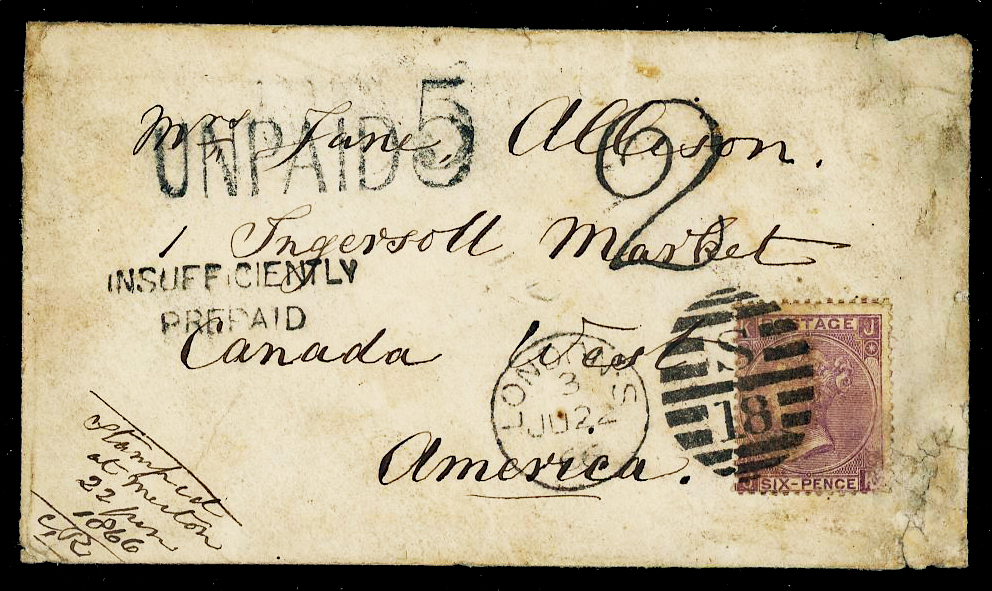 UNPAID 5
Mrs Jane Allison.
2
1 Ingersoll Market
INSUFFICIENTLY
PREPAID
Canada West
America.
LONDON S
3
JU 22
66
S
18
POSTAGE J
SIX-PENCE
Stamped
at Merton
22
1866